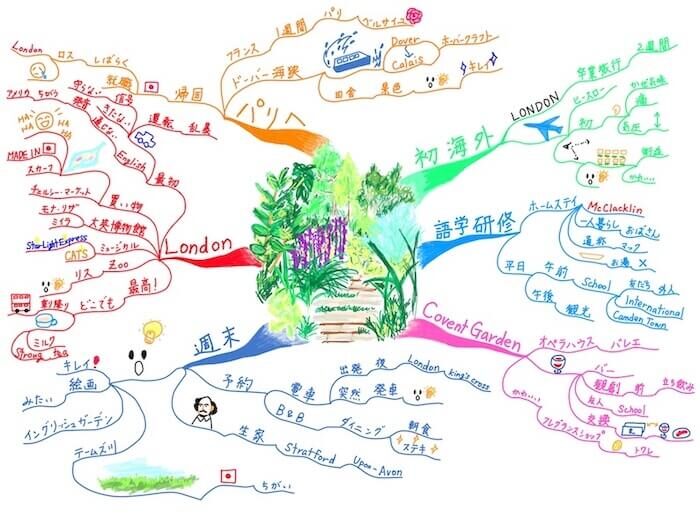 パリへ
フランス
1週間
パリ
ベルサイユ
ドーバー海峡
Dover
Calais
ホーバークラフト
田舎
景色
キレイ
帰国
就職
しばらく
ロス
London
初海外
LONDON
卒業旅行
2週間
ヒースロー
初
かぜ気味
痛
気圧
かわいい
語学研修
ホームステイ
McClacklin
一人暮らし
おばさん
通称
マック
お湯
×
平日
午前
School
友だち
外人
International
Camden Town
午後
観光
Covent Garden
オペラハウス
バレエ
バー
観劇
前
立ち飲み
友人
School
交換
かわいい
フレグランスショップ
トワレ
週末
予約
電車
出発
後
London
king's cross
突然
発車
B&B
ダイニング
朝食
ステキ
生家
Stratford
Upon-Avon
キレイ
絵画
みたい
イングリッシュガーデン
テームズ川
ちがい
London
最初
運転
乱暴
信号
守らない
きたない
English
通じない
発音
アメリカ
ちがう
HA HA
HA HA
買い物
MADE IN
スカーフ
チェルシー・マーケット
大英博物館
モナ・リザ
ミイラ
ミュージカル
StarLight Express
CATS
Zoo
リス
最高!
どこでも
乗り降り
ミルク
Strong tea